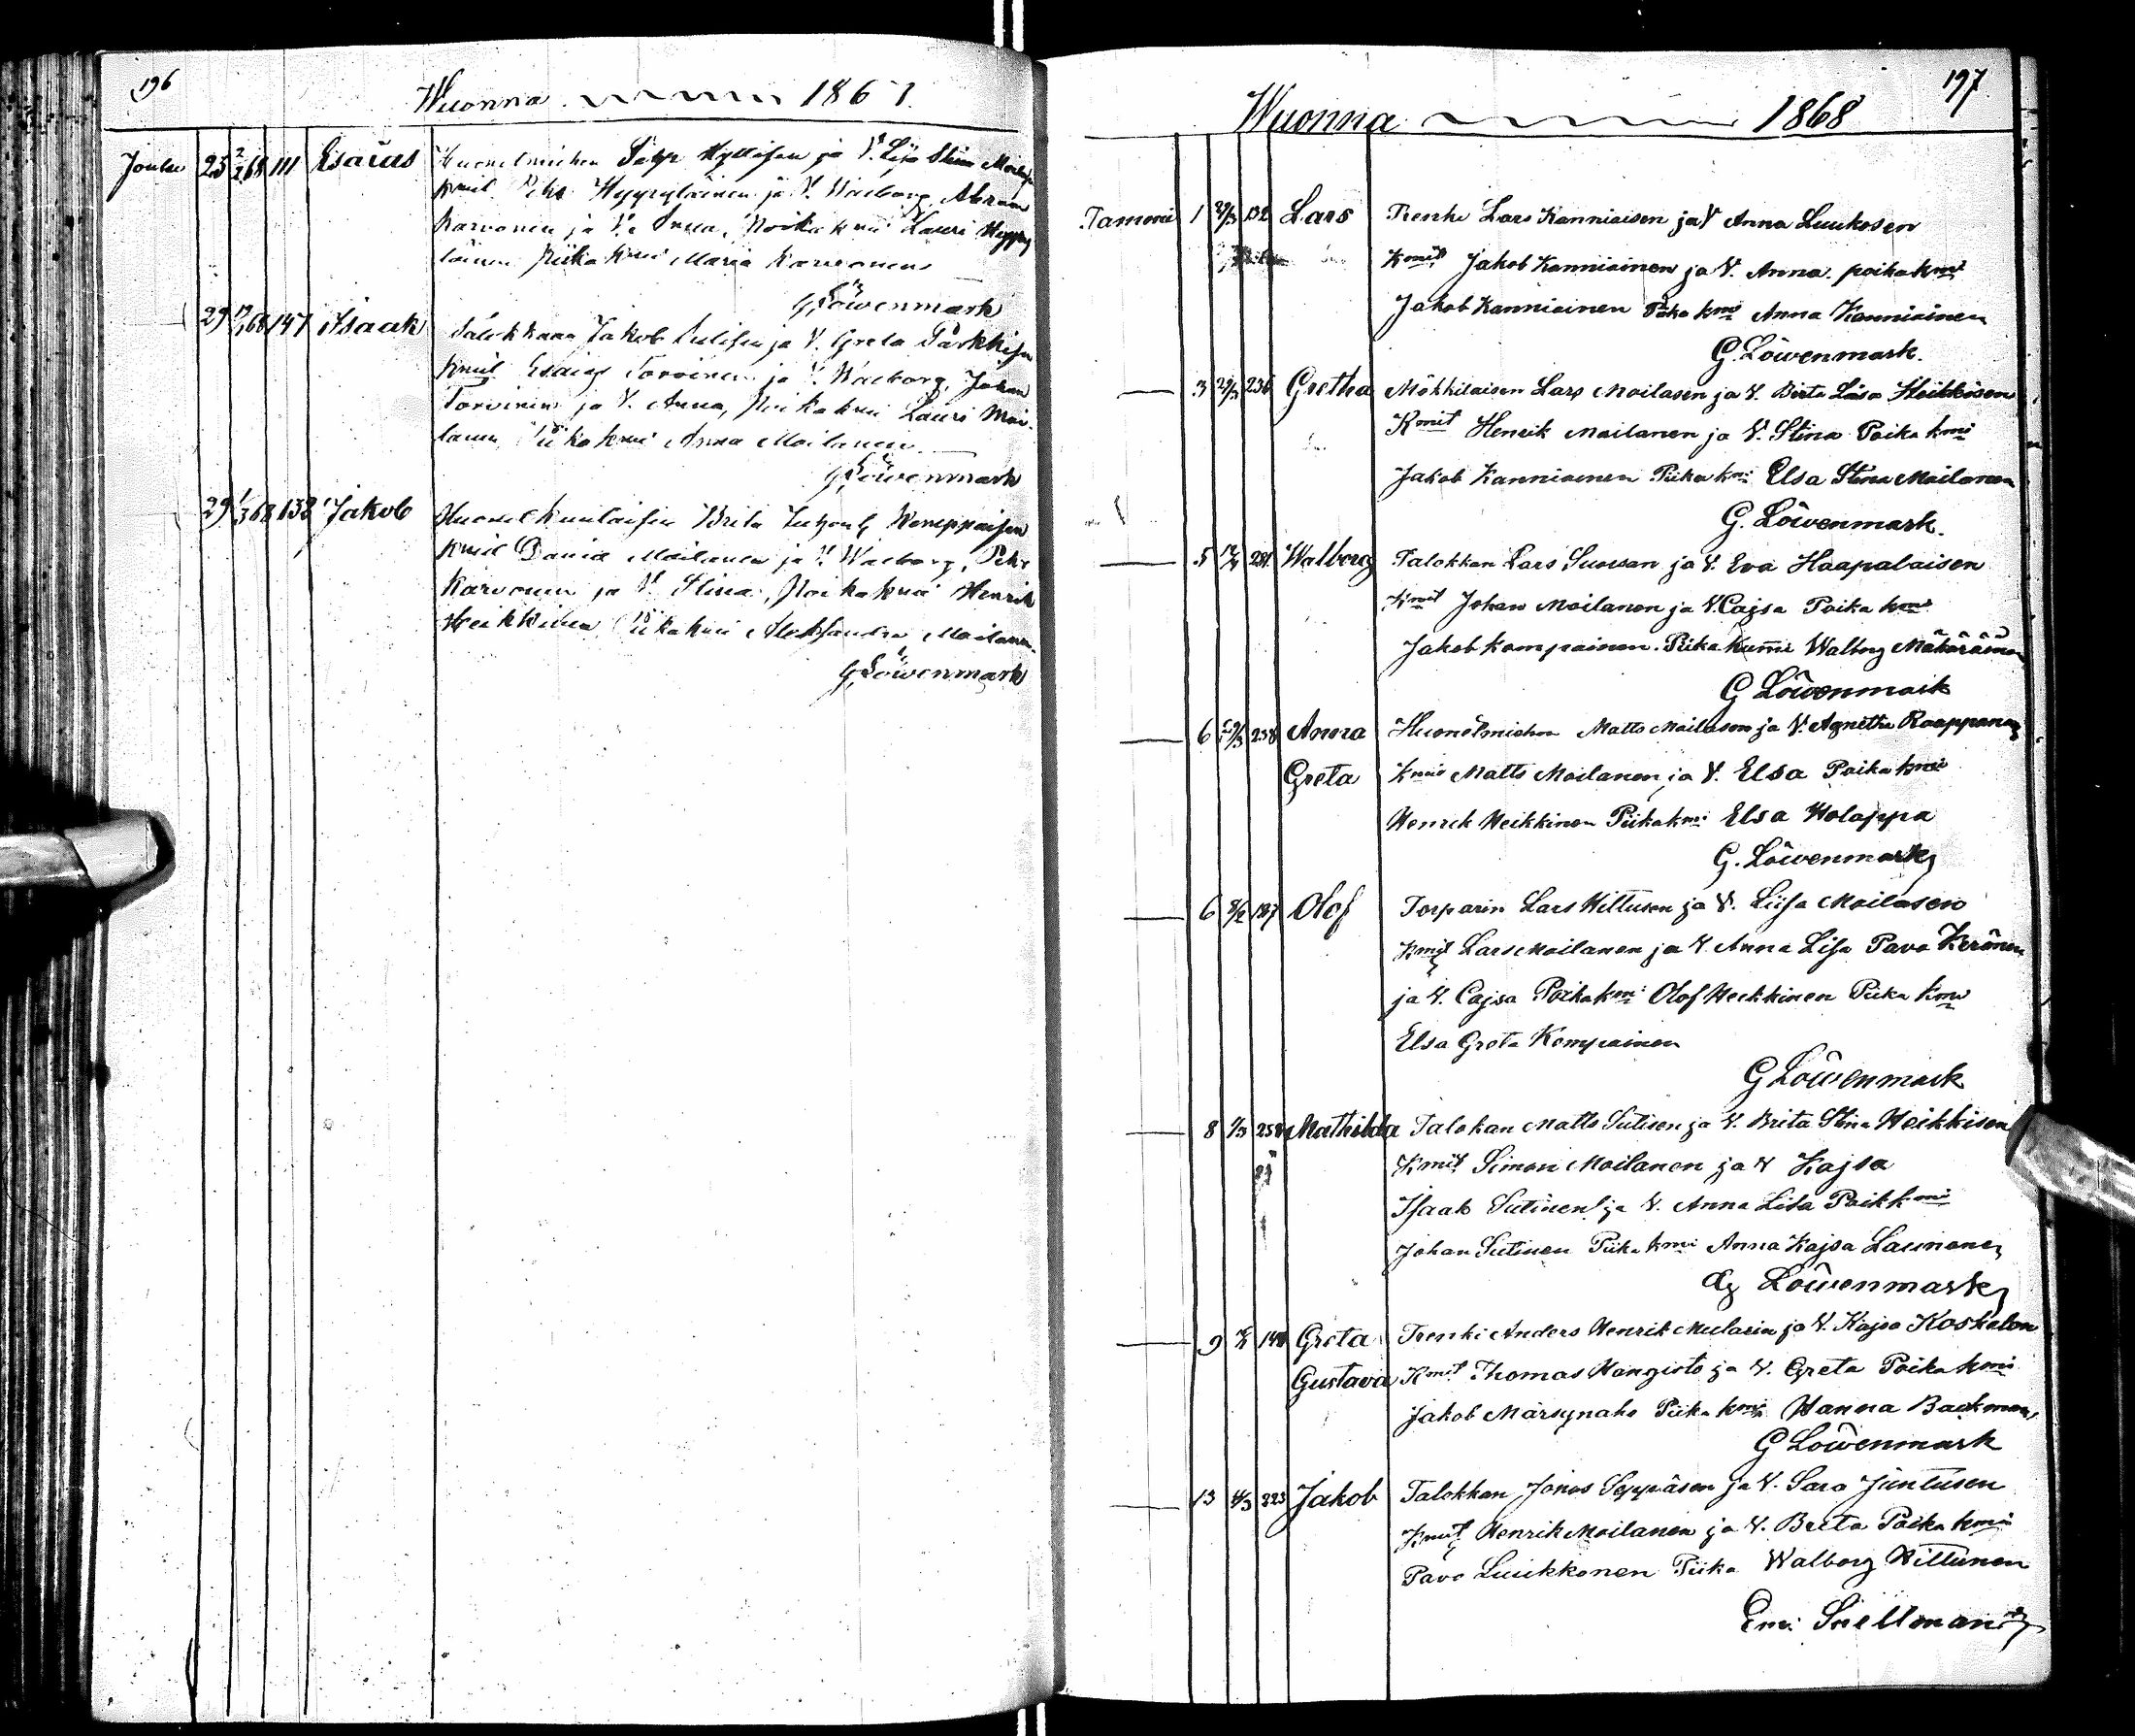 196
Wuonna 1867.
Joulu 25 2/2 68 111 Esaias Huonelmiehen ja V. Lisa Stina
Kmit Hyyryläinen ja V. Walborg, Abram
Karvonen ja V. Poika kmi Lauri Hyyry
läinen Piika kmi Maria Karvonen
G Löwenmark
29 68 147 Isaak Talokkaan Jakob ja V. Greta
Kmit Esaias Torvinen ja V. Walborg, Johan
Torvinen ja V. Anna, Poika kmi Lauri Moi
lanen Piika kmi Anna Moilanen
G Löwenmark
29 1/3 68 138 Jakob Brita
Kmit David Moilanen ja V. Walborg, Petr
Karvonen ja V. Stina, Poika kmi Henrik
Heikkinen Piika kmi Aleksandra Moilanen
G Löwenmark
197
Wuonna 1868
Tamoni 1 29/3 132 Lars Trenki Lars Kanniaisen ja V Anna Luukosen
Kmit Jakob Kanniainen ja V. Anna. poika kmi
Jakob Kanniainen Piika kmi Anna Kanniainen
G. Löwenmark.
3 29/3 236 Gretha Mökkilaisen Lars Moilasen ja V. Brita Liisa Heikkisen
Kmit Henrik Moilanen ja V. Stina Poika kmi
Jakob Kanniainen Piika kmi Elsa Stina Moilanen
G. Löwenmark.
5 281. Walborg Talokkan Lars Suossan ja V. Eva Haapalaisen
Kmit Johan Moilanen ja V. Cajsa Poika kmi
Jakob Kompainen. Piika kummi Walborg Mäkäräinen
G Löwenmark
6 238 Anna Huonelmiehen Matts Moilasen ja V. Agnetha Raappanan
Greta Kmit Matts Moilanen ja V. Elsa Poika kmi
Henrik Heikkinen Piika kmi Elsa Holappa
G. Löwenmark
6 8/2 187 Olof Torparin Lars Wittusen ja V. Liisa Moilasen
Kmit Lars Moilanen ja V. Anna Lisa Pavo Keränen
ja V. Cajsa Poika kmi Olof Heikkinen Piika kmi
Elsa Greta Kompainen
G Löwenmark
8 1/3 258 Mathilda Talokan Matts Sutisen ja V. Brita Stina Heikkisen
Kmit Simon Moilanen ja V Kajsa
Isaak Sutinen ja V. Anna Lisa Poik kmi
Johan Sutinen Piika kmi Anna Kajsa Launonen
G Löwenmark
9 148 Greta Trenki Anders Henrik Mularin ja V. Kajsa Koskelon
Gustava Kmit Thomas Hangisto ja V. Greta Poika kmi
Jakob Märsynaho Piika kmi Hanna Backman,
G Löwenmark
13 4/3 223 Jakob Talokkan Jonas Seppäsen ja V. Sara Juntusen
Kmit Henrik Moilanen ja V. Breta Poika kmi
Pavo Luukkonen Piika Walborg Wittunen
Em: Snellman